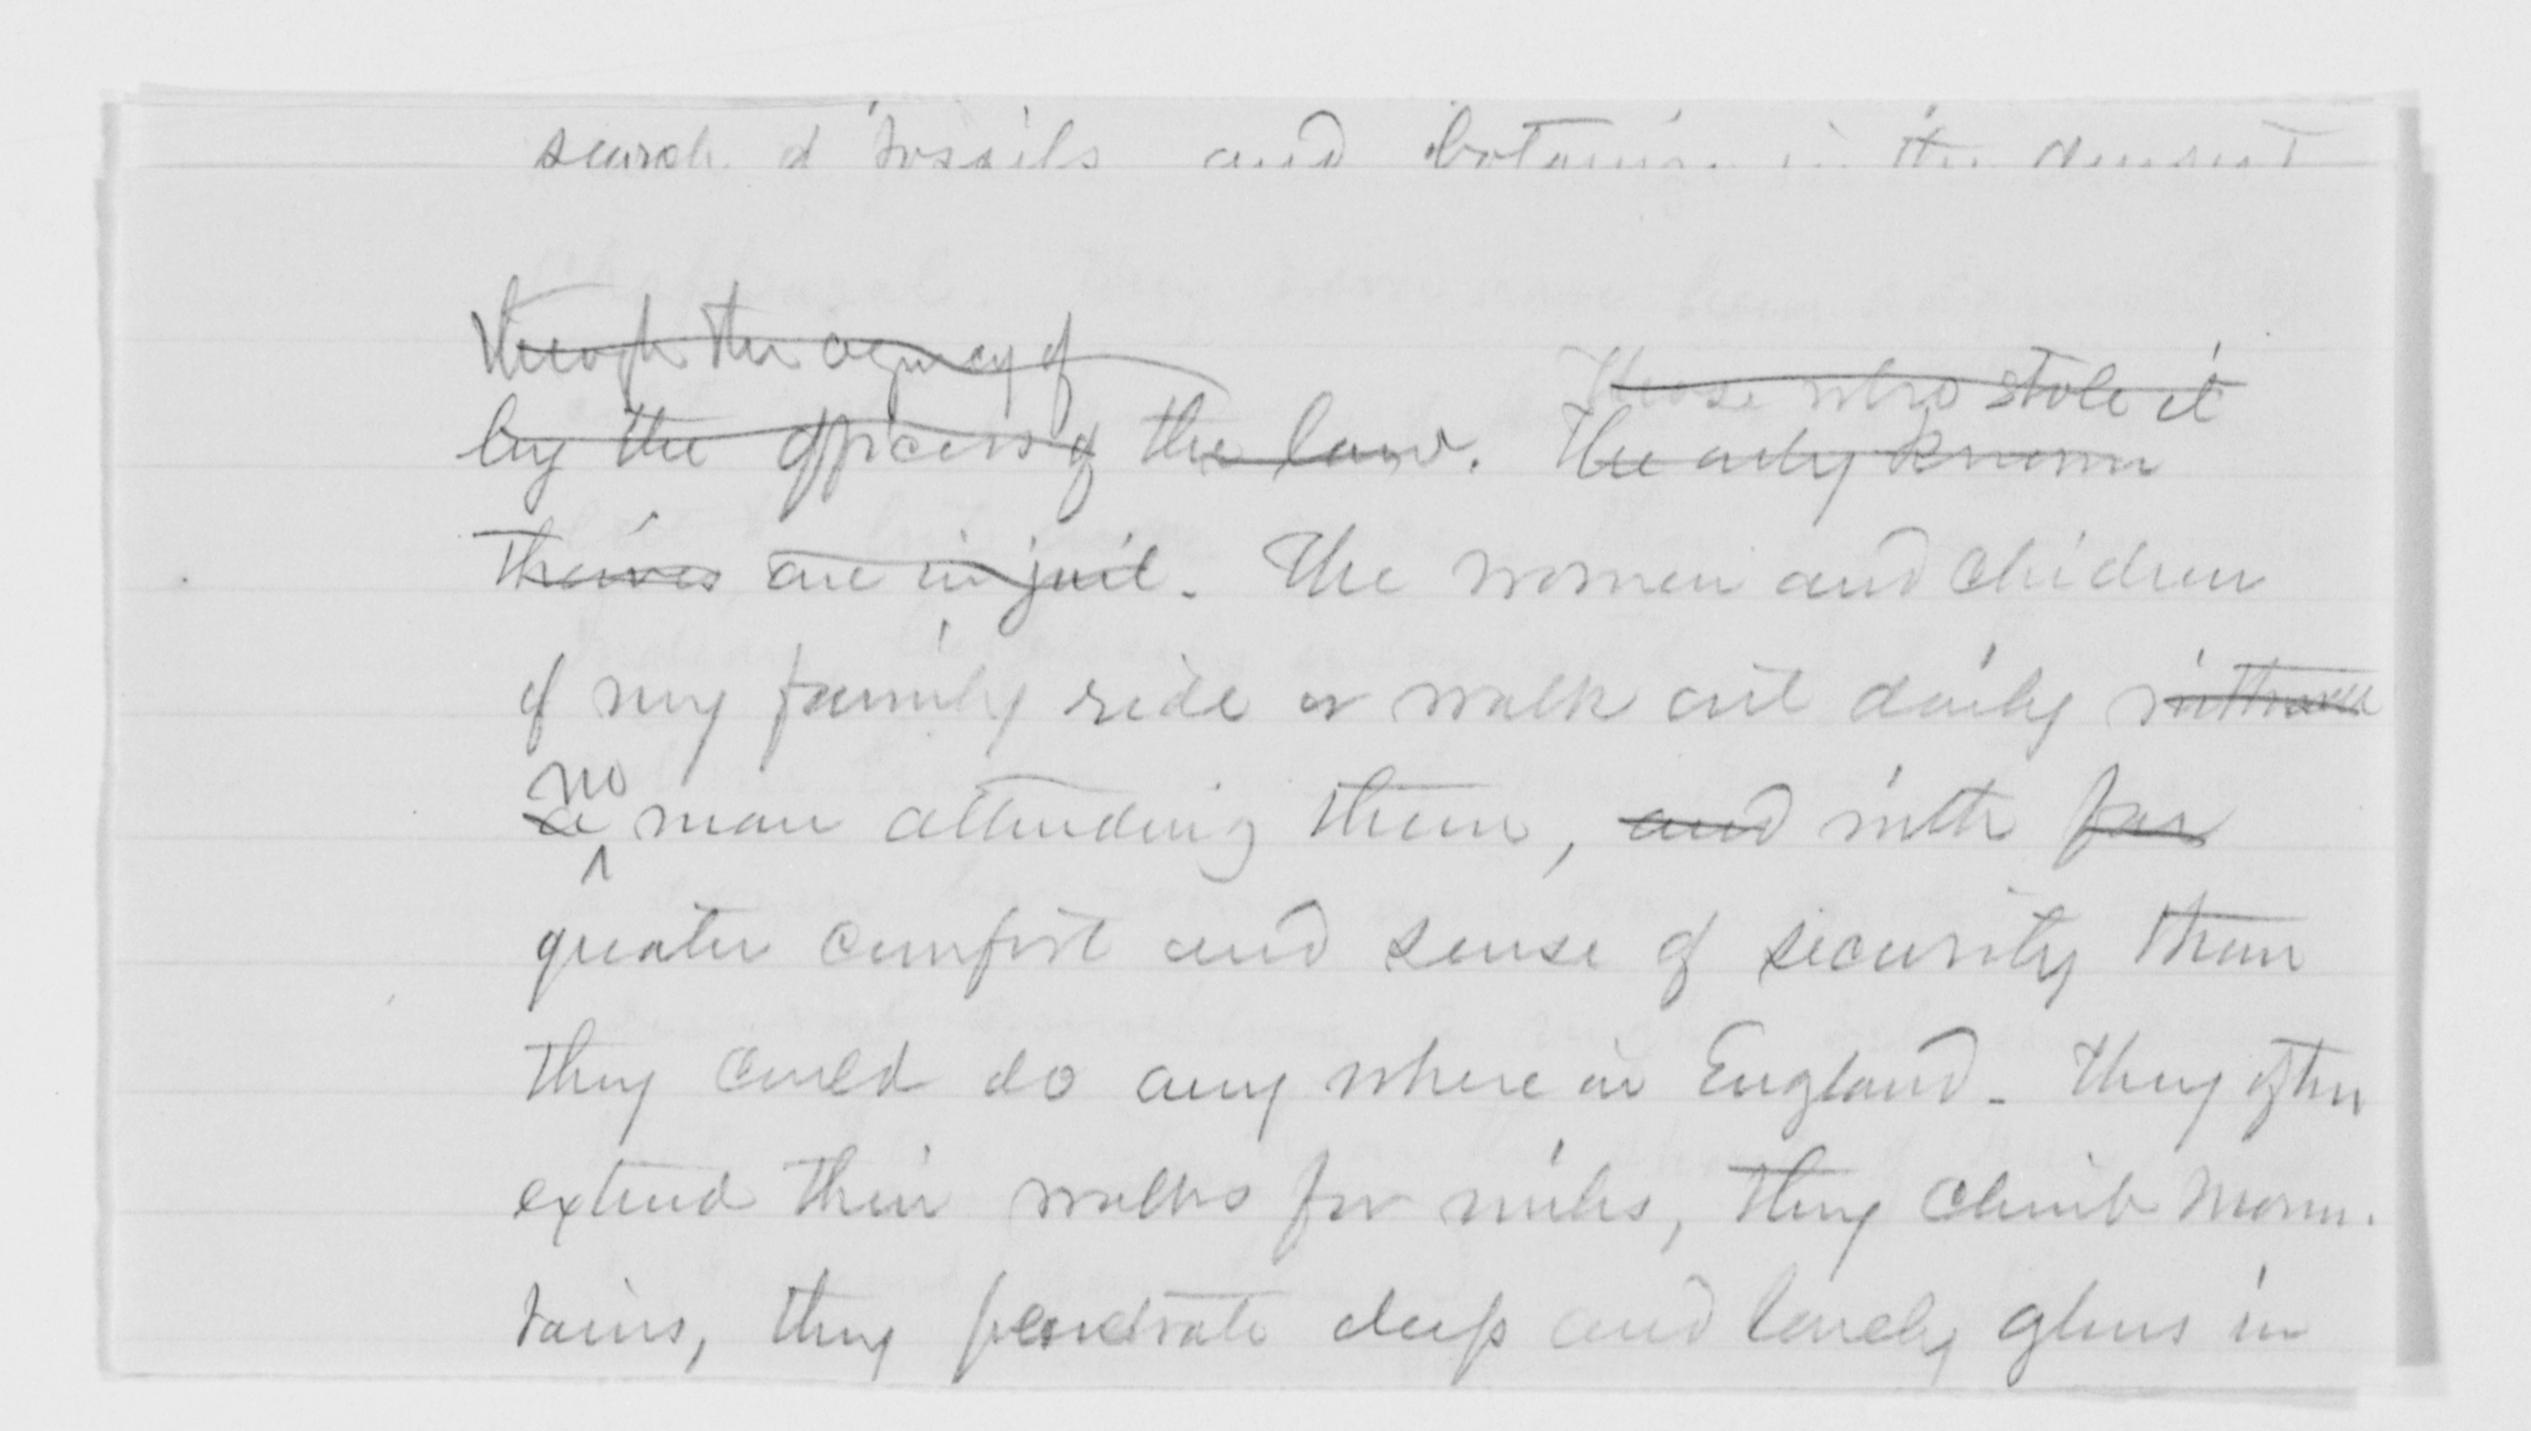 search of fossils and botanize in the densest
through the agency of
Those who stole it
by the officers of the law. The only known
theives are in jail. The women and children
of my family ride or walk out daily without
no
a man attending them, and with far
greater comfort and sense of security than
they could do any where in England. They often
extend their walks for miles, they climb moun-
tains, they penetrate deep and lonely glens in